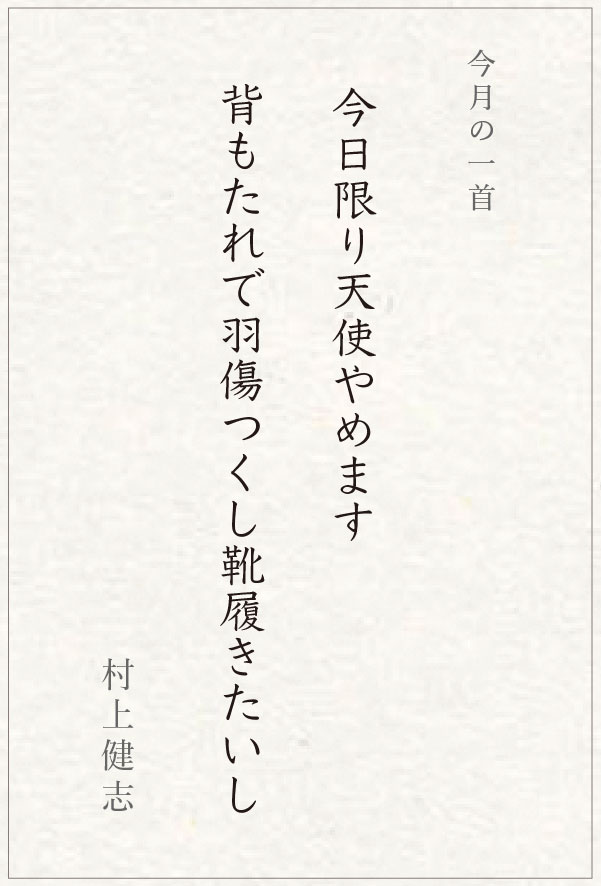 今月の一首
今日限り天使やめます
背もたれで羽傷つくし靴履きたいし
村上健志